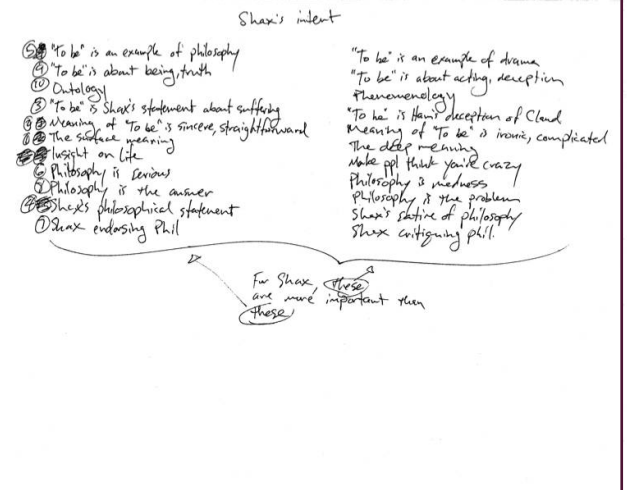 Shax's intent
⑤ "To be" is an example of philosophy
⑨ "To be" is about being, truth
⑩ Ontology
③ "To be" is Shax's statement about suffering
Meaning of "To be" is sincere, straightforward
The surface meaning
Insight on life
⑥ Philosophy is serious
Philosophy is the answer
④ Shax's philosophical statement
⑦ Shax endorsing Phil
"To be" is an example of drama
"To be" is about acting, deception
Phenomenology
"To be" is Ham's deception of Claud
Meaning of "To be" is ironic, complicated
The deep meaning
Make ppl think you're crazy
Philosophy is madness
Philosophy is the problem
Shax's satire of philosophy
Shax critiquing phil.
For Shax, these
are more important than
these